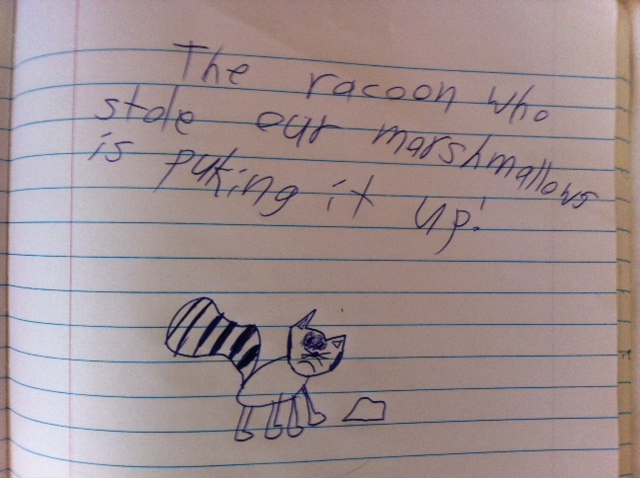 The racoon who
stole our marshmallows
is puking it up!